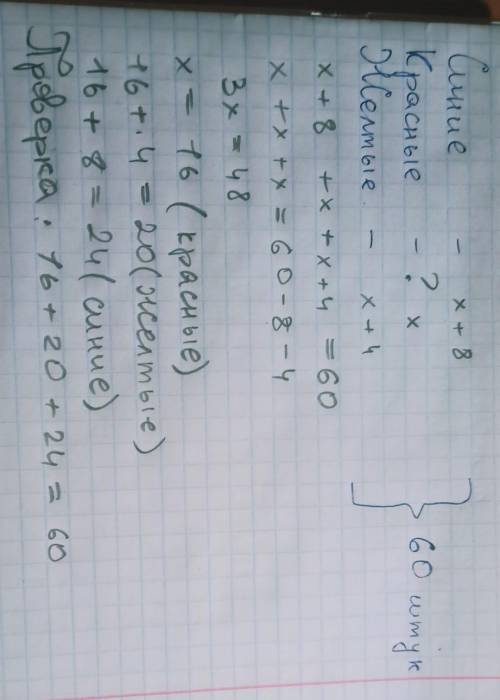 Синие - x + 8
Красные - ? x
Желтые. - x + 4
60 штук
x + 8 + x + x + 4 = 60
x + x + x = 60 - 8 - 4
3x = 48
x = 16 (красные)
16 + 4 = 20 (желтые)
16 + 8 = 24 (синие)
Проверка: 16 + 20 + 24 = 60